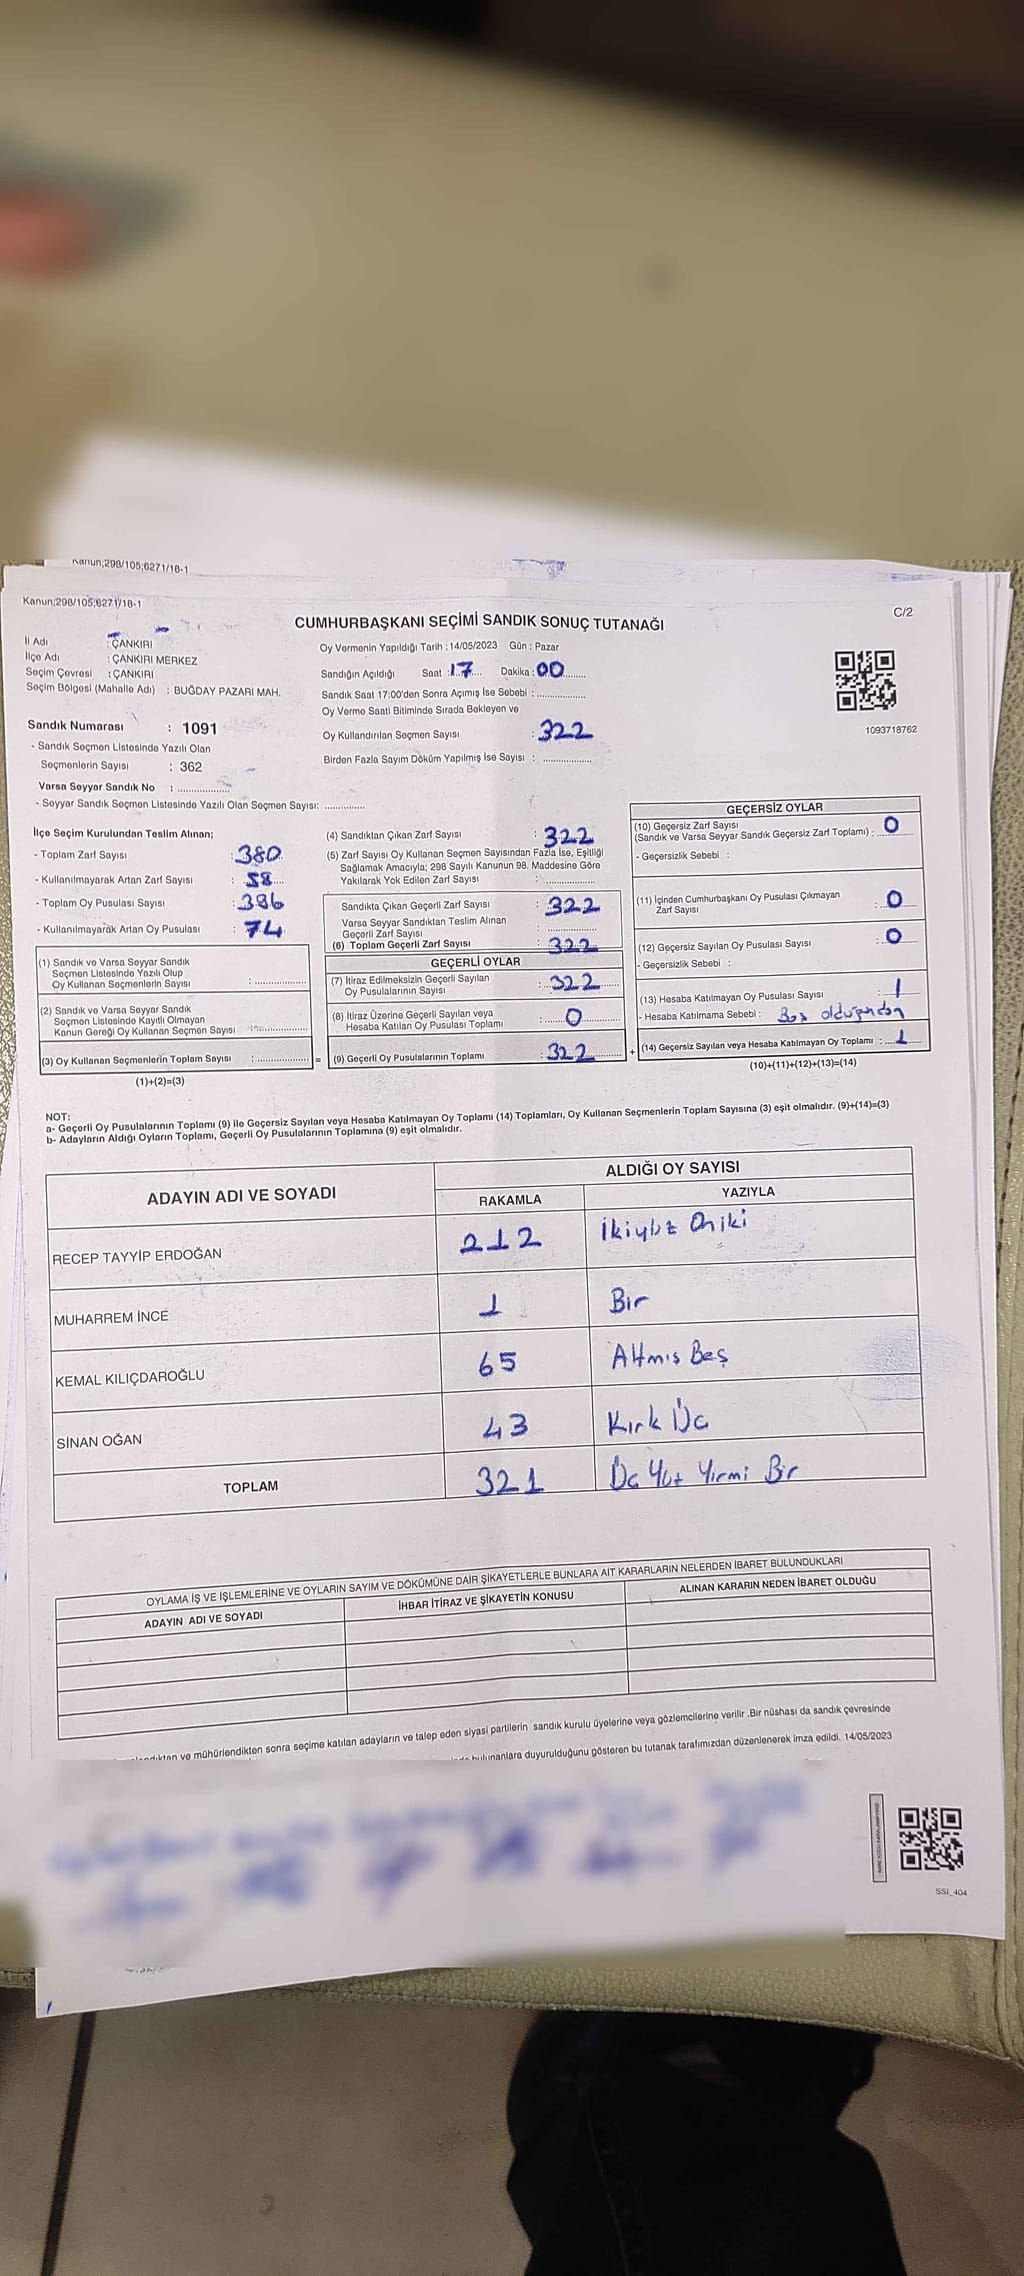 Kanun;298/105;6271/18-1
Kanun;298/105;6271/18-1
C/2
CUMHURBAŞKANI SEÇİMİ SANDIK SONUÇ TUTANAĞI
İl Adı : ÇANKIRI
İlçe Adı : ÇANKIRI MERKEZ
Seçim Çevresi : ÇANKIRI
Seçim Bölgesi (Mahalle Adı) : BUĞDAY PAZARI MAH.
Oy Vermenin Yapıldığı Tarih : 14/05/2023 Gün : Pazar
Sandığın Açıldığı Saat : 17 Dakika : 00
Sandık Saat 17:00'den Sonra Açımış İse Sebebi :
Oy Verme Saati Bitiminde Sırada Bekleyen ve
Oy Kullandırılan Seçmen Sayısı : 322
Birden Fazla Sayım Döküm Yapılmış İse Sayısı :
1093718762
Sandık Numarası : 1091
- Sandık Seçmen Listesinde Yazılı Olan
Seçmenlerin Sayısı : 362
Varsa Seyyar Sandık No :
- Seyyar Sandık Seçmen Listesinde Yazılı Olan Seçmen Sayısı:
İlçe Seçim Kurulundan Teslim Alınan;
- Toplam Zarf Sayısı : 380
- Kullanılmayarak Artan Zarf Sayısı : 58
- Toplam Oy Pusulası Sayısı : 396
- Kullanılmayarak Artan Oy Pusulası : 74
(1) Sandık ve Varsa Seyyar Sandık
Seçmen Listesinde Yazılı Olup
Oy Kullanan Seçmenlerin Sayısı :
(2) Sandık ve Varsa Seyyar Sandık
Seçmen Listesinde Kayıtlı Olmayan
Kanun Gereği Oy Kullanan Seçmen Sayısı :
(3) Oy Kullanan Seçmenlerin Toplam Sayısı : =
(1)+(2)=(3)
(4) Sandıktan Çıkan Zarf Sayısı : 322
(5) Zarf Sayısı Oy Kullanan Seçmen Sayısından Fazla İse, Eşitliği
Sağlamak Amacıyla; 298 Sayılı Kanunun 98. Maddesine Göre
Yakılarak Yok Edilen Zarf Sayısı :
Sandıkta Çıkan Geçerli Zarf Sayısı : 322
Varsa Seyyar Sandıktan Teslim Alınan
Geçerli Zarf Sayısı :
(6) Toplam Geçerli Zarf Sayısı : 322
GEÇERLİ OYLAR
(7) İtiraz Edilmeksizin Geçerli Sayılan
Oy Pusulalarının Sayısı : 322
(8) İtiraz Üzerine Geçerli Sayılan veya
Hesaba Katılan Oy Pusulası Toplamı : 0
(9) Geçerli Oy Pusulalarının Toplamı : 322 +
GEÇERSİZ OYLAR
(10) Geçersiz Zarf Sayısı
(Sandık ve Varsa Seyyar Sandık Geçersiz Zarf Toplamı) : 0
- Geçersizlik Sebebi :
(11) İçinden Cumhurbaşkanı Oy Pusulası Çıkmayan
Zarf Sayısı : 0
(12) Geçersiz Sayılan Oy Pusulası Sayısı : 0
- Geçersizlik Sebebi :
(13) Hesaba Katılmayan Oy Pusulası Sayısı : 1
- Hesaba Katılmama Sebebi : Boş olduğundan
(14) Geçersiz Sayılan veya Hesaba Katılmayan Oy Toplamı : 1
(10)+(11)+(12)+(13)=(14)
NOT:
a- Geçerli Oy Pusulalarının Toplamı (9) ile Geçersiz Sayılan veya Hesaba Katılmayan Oy Toplamı (14) Toplamları, Oy Kullanan Seçmenlerin Toplam Sayısına (3) eşit olmalıdır. (9)+(14)=(3)
b- Adayların Aldığı Oyların Toplamı, Geçerli Oy Pusulalarının Toplamına (9) eşit olmalıdır.
ADAYIN ADI VE SOYADI
ALDIĞI OY SAYISI
RAKAMLA YAZIYLA
RECEP TAYYİP ERDOĞAN 212 İkiyüz Oniki
MUHARREM İNCE 1 Bir
KEMAL KILIÇDAROĞLU 65 Altmış Beş
SİNAN OĞAN 43 Kırk Üç
TOPLAM 321 Üç Yüz Yirmi Bir
OYLAMA İŞ VE İŞLEMLERİNE VE OYLARIN SAYIM VE DÖKÜMÜNE DAİR ŞİKAYETLERLE BUNLARA AİT KARARLARIN NELERDEN İBARET BULUNDUKLARI
ADAYIN ADI VE SOYADI İHBAR İTİRAZ VE ŞİKAYETİN KONUSU ALINAN KARARIN NEDEN İBARET OLDUĞU
ve mühürlendikten sonra seçime katılan adayların ve talep eden siyasi partilerin sandık kurulu üyelerine veya gözlemcilerine verilir .Bir nüshası da sandık çevresinde
bulunanlara duyurulduğunu gösteren bu tutanak tarafımızdan düzenlenerek imza edildi. 14/05/2023
SSI_404